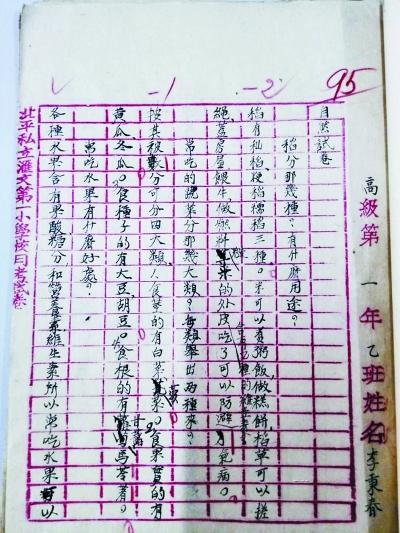 高級第一年乙班姓名李東春
95
自然試卷
稻分那幾種？有什麼用途。
稻有秈稻、粳稻、糯稻三種。米可以煑粥飯，做糕餅，稻草可以搓
繩，蓋房屋，餵牛，做燃料。的外皮吃了可以防避病。
-2
常吃的蔬菜分那幾大類？每類舉出兩種來？
按其被食部分可分四大類：食葉的有白菜菜。食果實的有
-1
黃瓜、冬瓜。食種子的有大豆、胡豆。食根的有甘薯、馬苓薯。
常吃水果有什麼好處？
各種水果含有果酸糖分和營養素維生素所以常吃水果可以
北平私立滙文第一小學校月考試卷